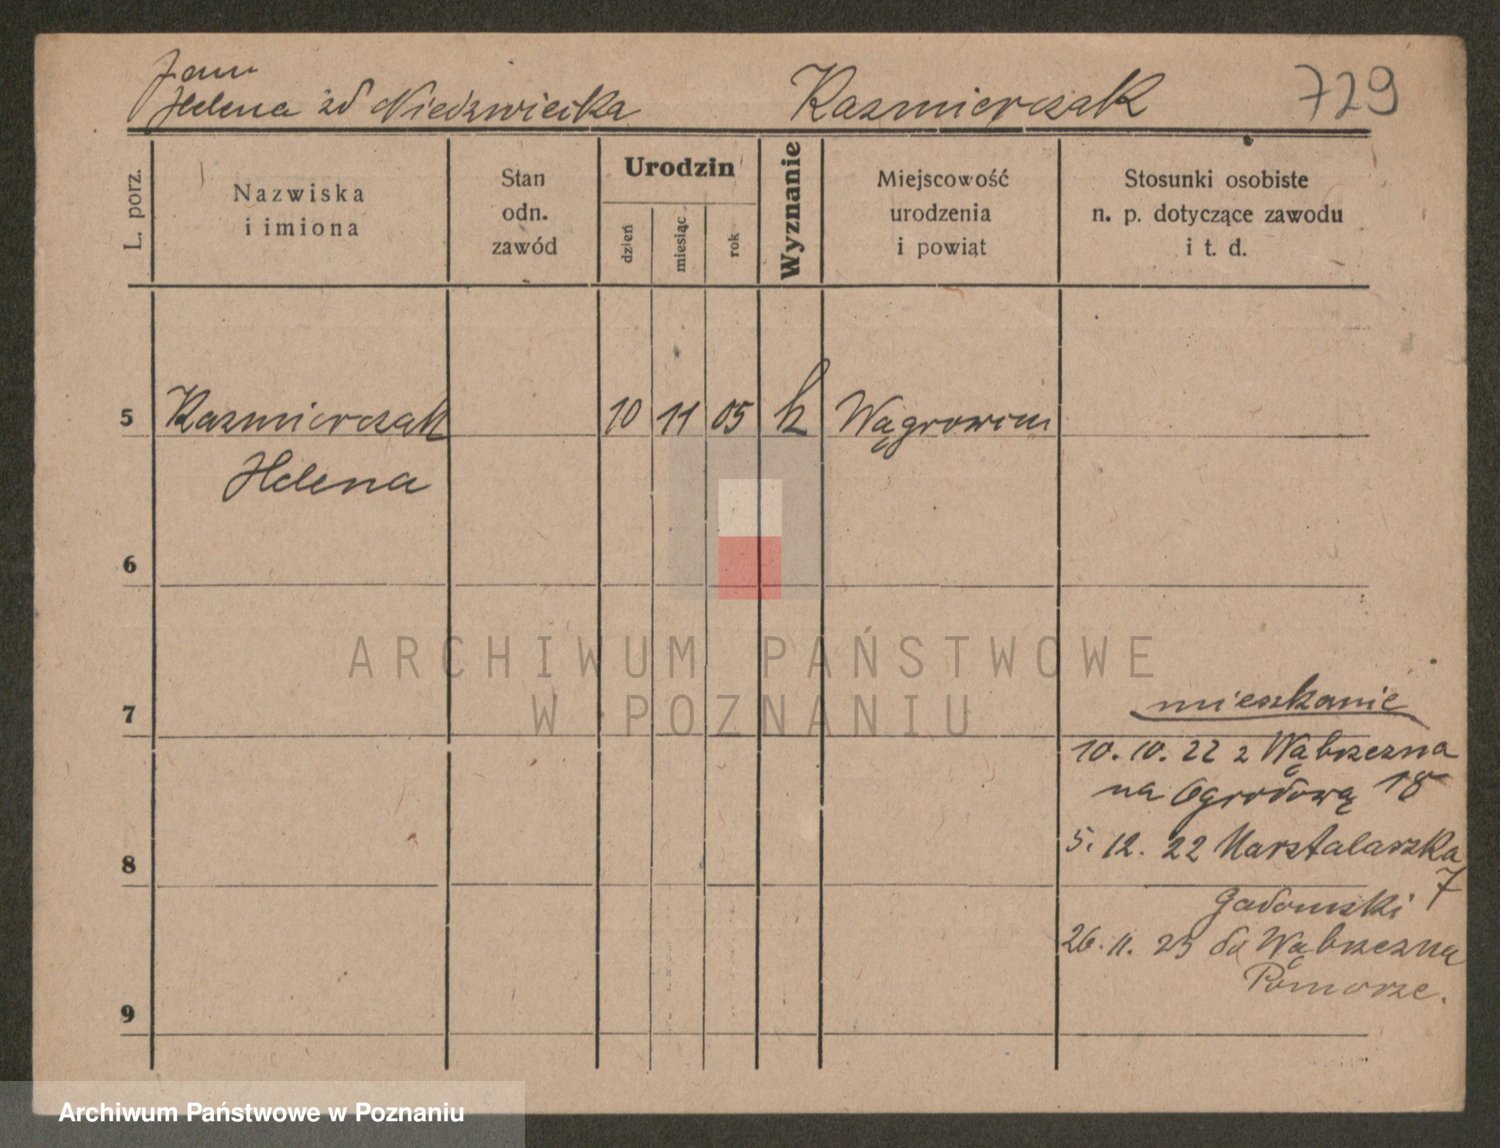 Jan
Helena zd Niedzwiecka Kazmierczak 729
L. porz.
Nazwiska
i imiona
Stan
odn.
zawód
Urodzin
dzień
miesiąc
rok
Wyznanie
Miejscowość
urodzenia
i powiąt
Stosunki osobiste
n. p. dotyczące zawodu
i t. d.
5 Kazmierczak 10 11 05 k Wągrowiec
Helena
6
ARCHIWUM PAŃSTWOWE
W POZNANIU
7
mieszkanie
10. 10. 22 z Wąbrzezna
na Ogrodową 18
8
5. 12. 22 Marstalarska
7
Gadomski
26. 11. 23 do Wąbrzezna
Pomorze.
9
Archiwum Państwowe w Poznaniu